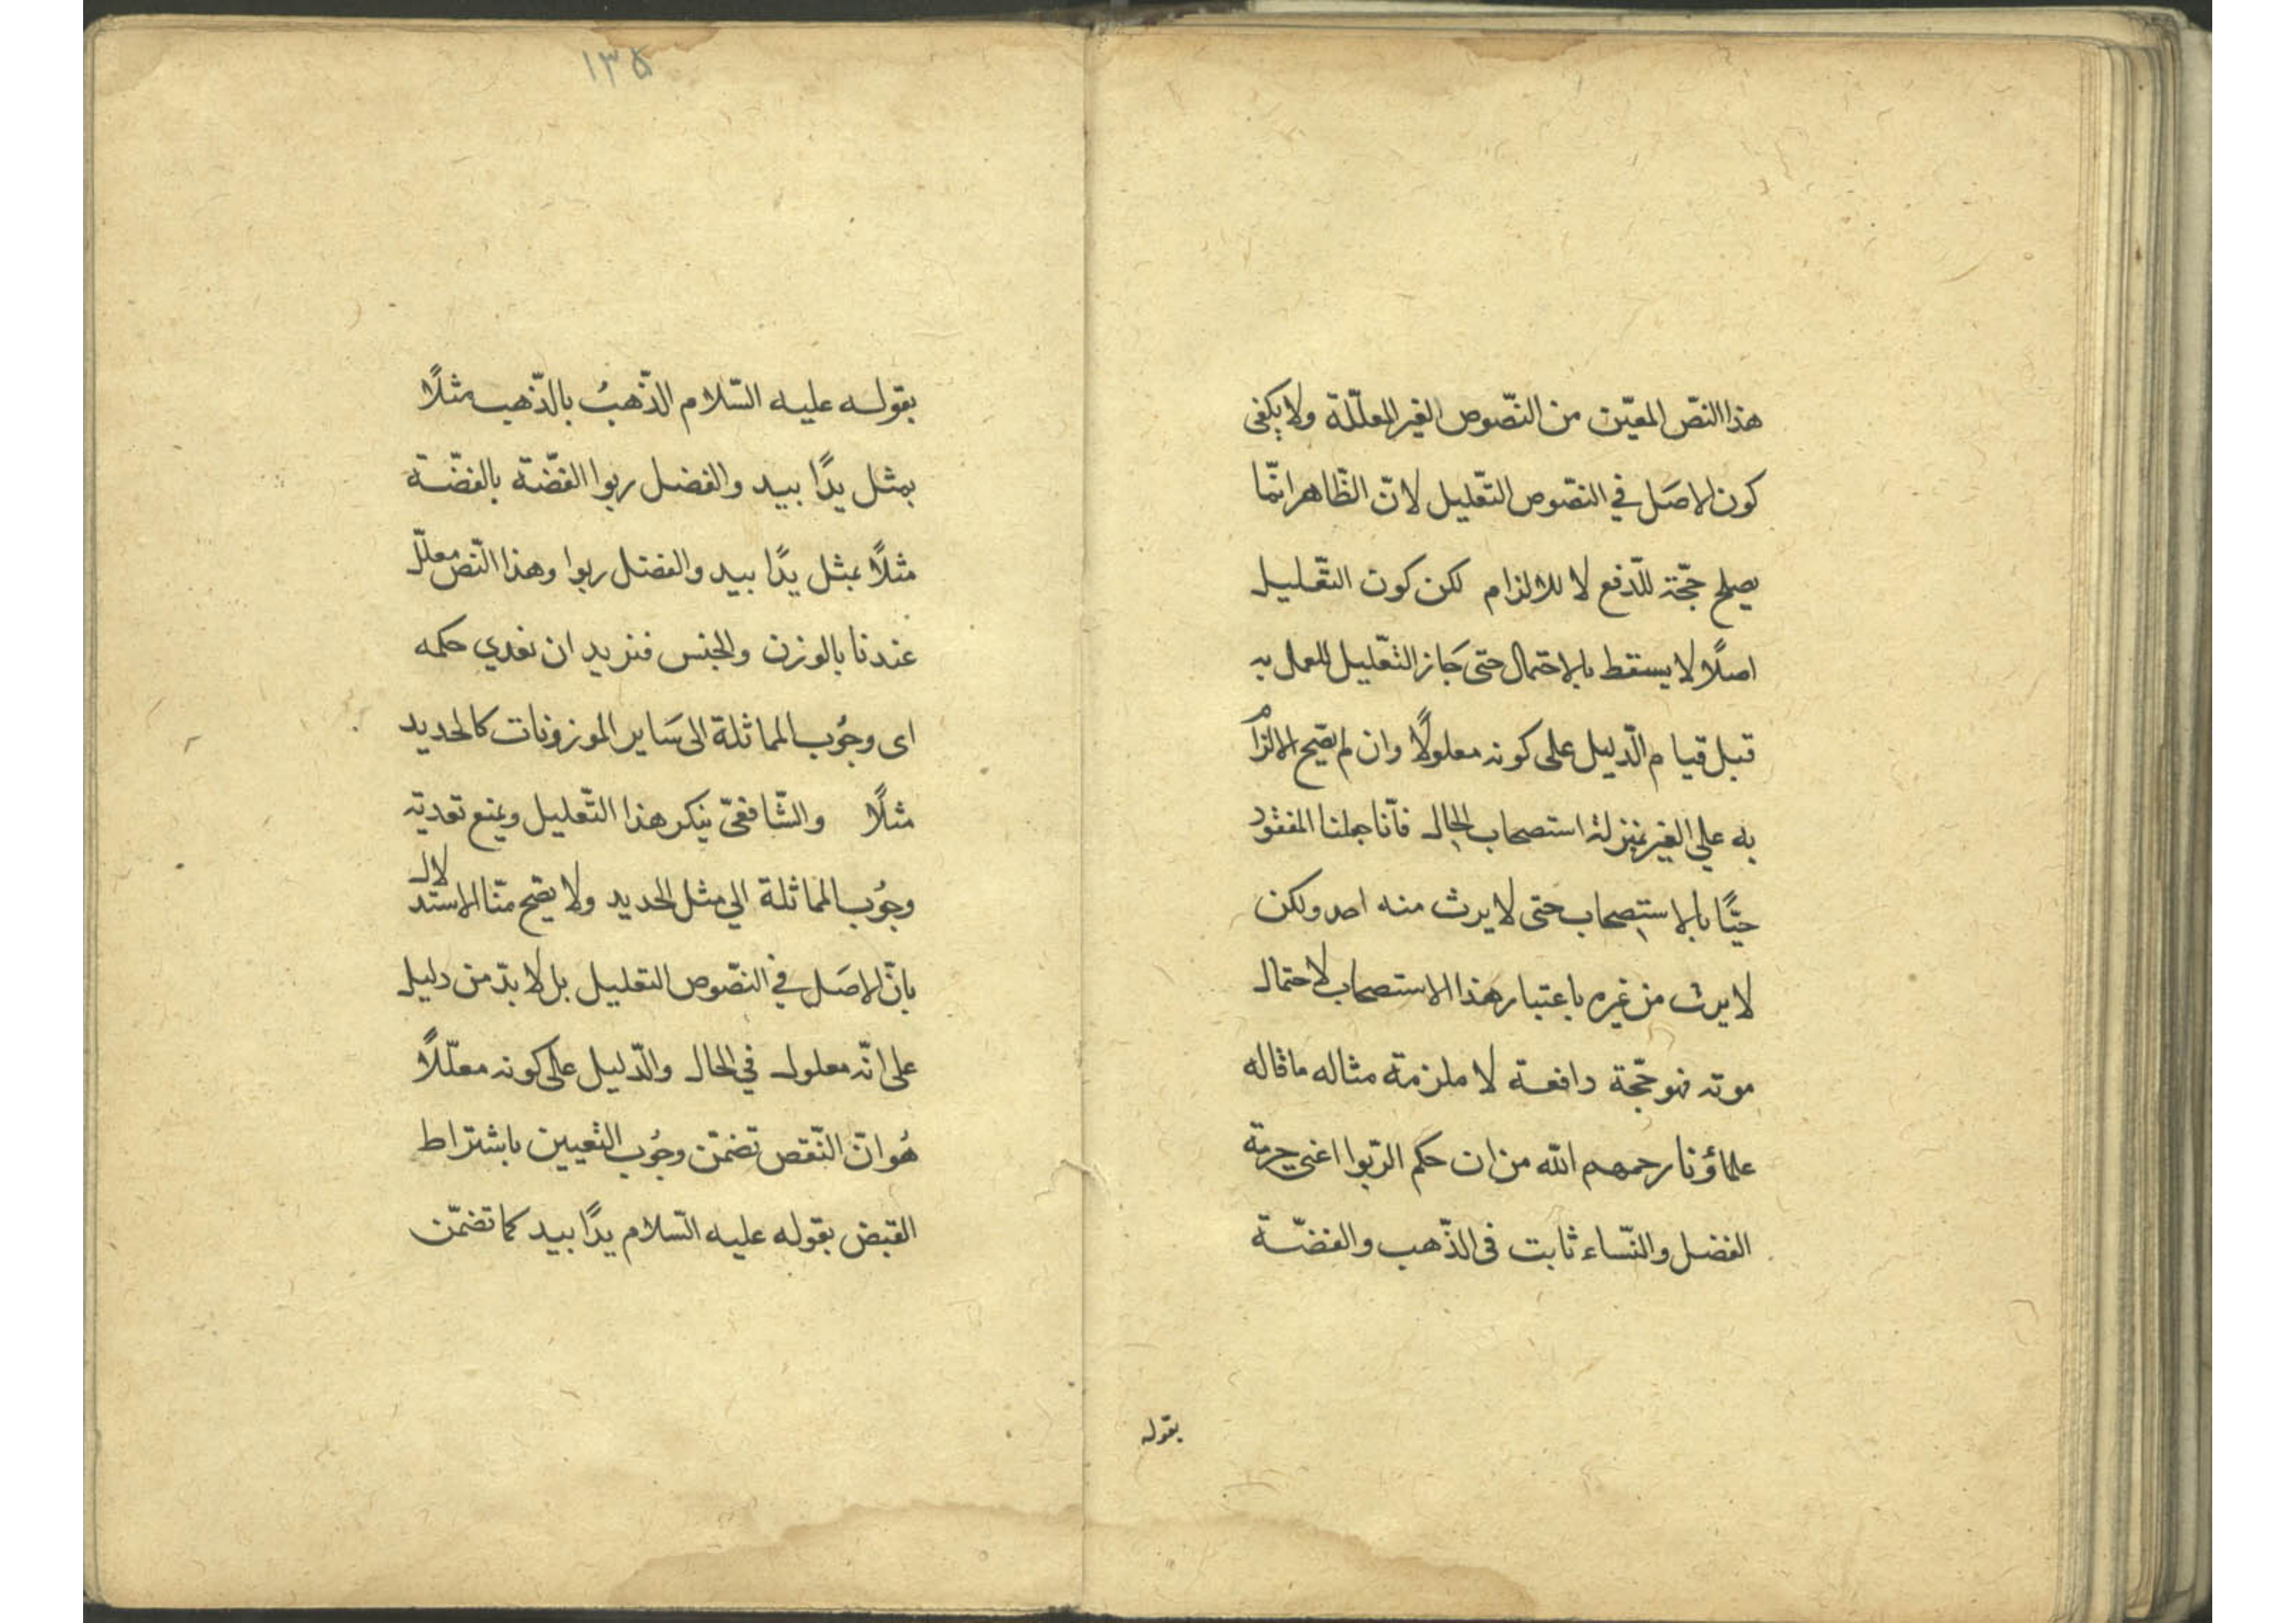 هذا النصّ المعيّن من النصّوص الغير المعلّلة ولا يكفى
كون الاصَل في النصّوص التعّليل لانّ الظّاهر انّما
يصلح حجّة للدّفع لا للالزام لكن كون التعّليل
اصلًا لا يسقط بالاحتمال حتى جَاز التعّليل للعمل به
قبل قيام الدّليل على كونه معلولًا وان لم يصّح الالزام
به على الغير بمنزلة استصحاب الحال فانّا جعلنا المفقود
حيًّا بالاستصحاب حتى لا يرث منه احد ولكن
لا يرث من غيره باعتبار هذا الاستصحاب لاحتمال
موته فهو حجّة دافعة لا ملزمة مثاله ما قاله
علماؤنا رحمهم الله من ان حكم الرّبوا اعنى حرمة
الفضل والنّساء ثابت فى الذّهب والفضّة
بقوله
١٣٥
بقوله عليه السّلام الذّهبُ بالذّهب مثلًا
بمثل يدًا بيد والفضل ربوا الفضّة بالفضّة
مثلًا بمثل يدًا بيد والفضل ربوا وهذا النّص معلّل
عندنا بالوزن والجنس فنريد ان نعدي حكمه
اى وجُوب المماثلة الى سَاير الموزونات كالحديد
مثلًا والشّافعىّ ينكر هذا التّعليل ويمنع تعديته
وجُوب المماثلة الي مثل الحديد ولا يصّح منّا الاستدلال
بانّ الاصَل في النصّوص التعليل بل لا بدّ من دليل
على انّه معلول في الحال والدّليل على كونه معلّلًا
هُو انّ النّقص تضمّن وجُوب التعيين باشتراط
القبض بقوله عليه السّلام يدًا بيد كما تضمّن